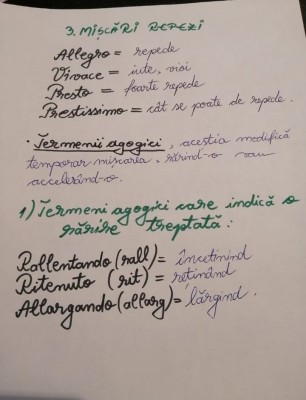 3. MIȘCĂRI REPEZI
Allegro = repede
Vivace = iute, vioi
Presto = foarte repede
Prestissimo = cât se poate de repede.
• Termenii agogici, aceștia modifică
temporar mișcarea, rărind-o sau
accelerând-o.
1) Termeni agogici care indică o
rărire treptată:
Rallentando (rall) = încetinind
Ritenuto (rit) = reținând
Allargando (allarg) = lărgind.